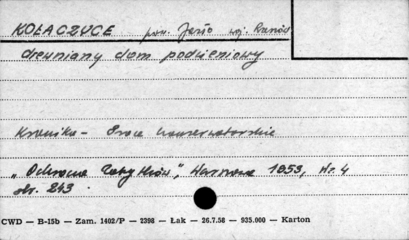 KOŁACZYCE pow. Jasło woj. Rzeszów
drewniany dom podcieniowy
Kronika – Prace konserwatorskie
„Ochrona Zabytków", Warszawa 1953, Nr. 4
str. 243.
CWD — B-15b — Zam. 1402/P — 2398 — Łak — 26.7.58 — 935.000 — Karton